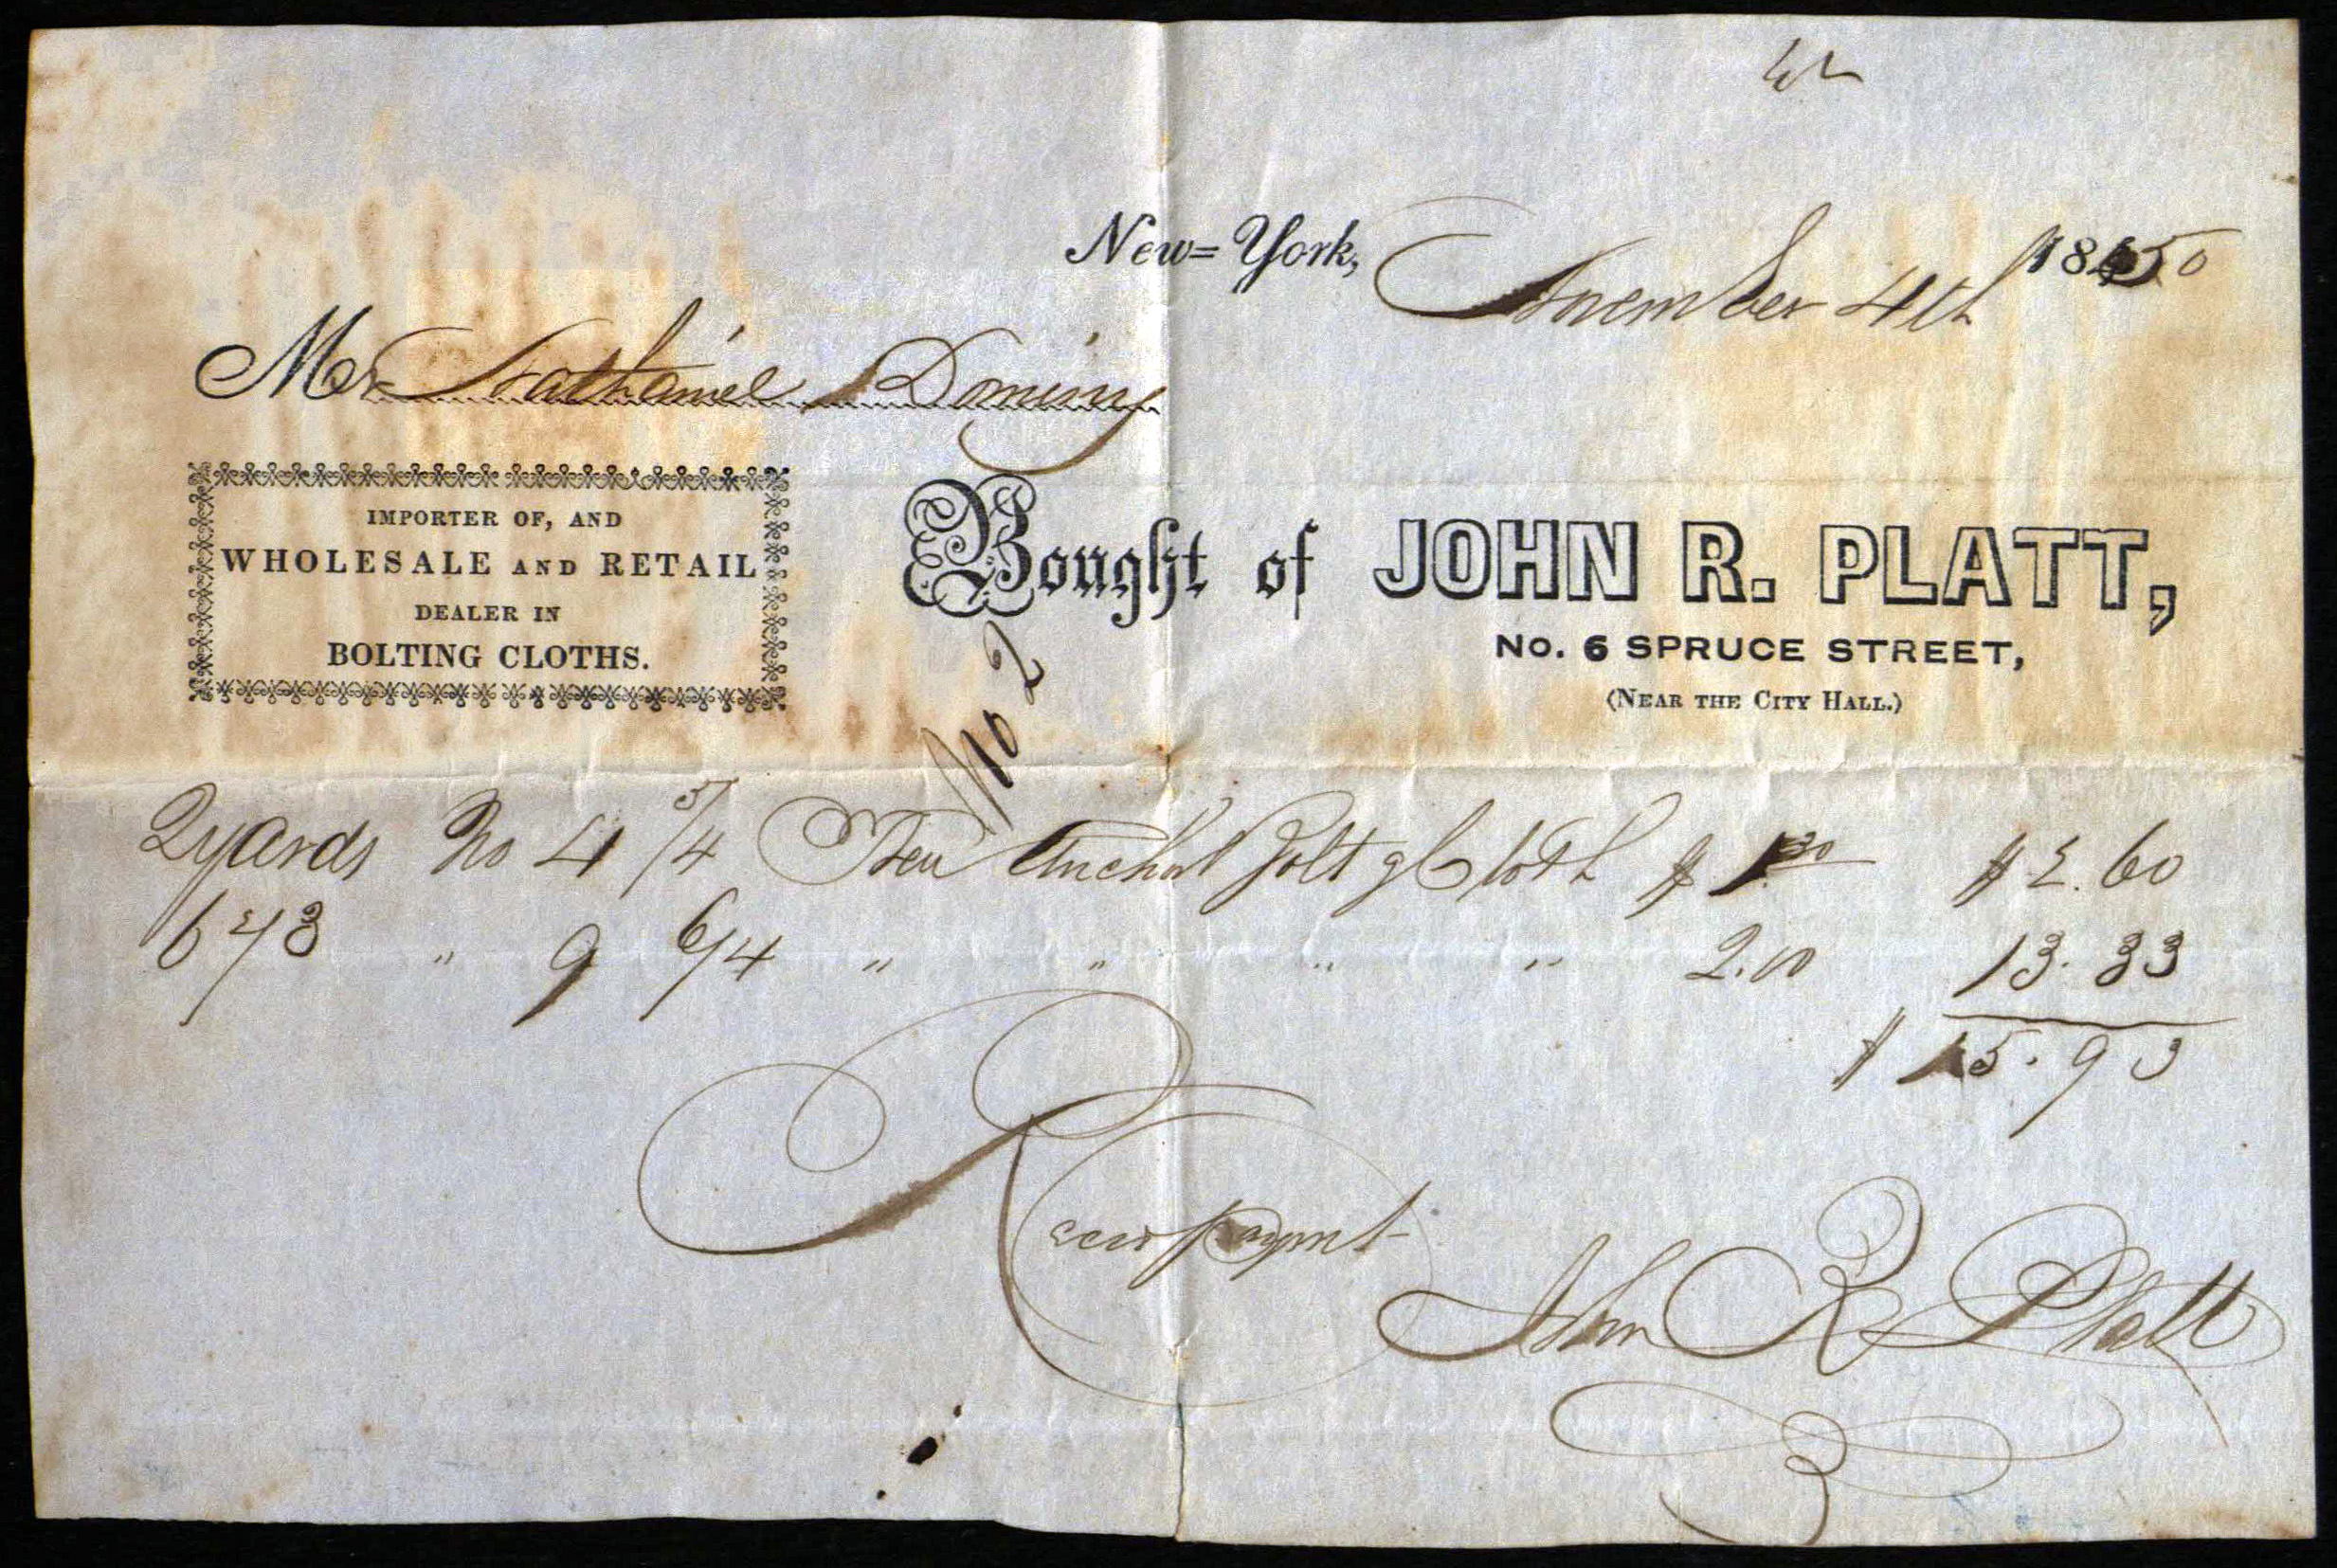 New=York, November 4th 1850
Mr Nathaniel Dominy
IMPORTER OF, AND
WHOLESALE AND RETAIL
DEALER IN
BOLTING CLOTHS.
Bought of JOHN R. PLATT,
No. 6 SPRUCE STREET,
(NEAR THE CITY HALL.)
No 2
2 yards No 4 5/4 Anchor Boltg Cloth $ 1.30 $ 2.60
6 2/3 " 9 6/4 " " " " 2.00 13.33
$ 15.93
Recd paymt
John R Platt